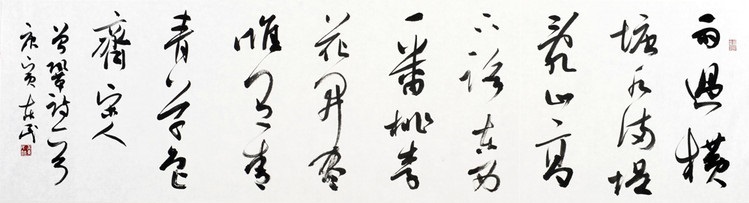 雨過橫
塘水滿堤
亂山高
下路東西
一番桃李
花開盡
惟有青
青草色
齊宋人
曾鞏詩一首
庚寅